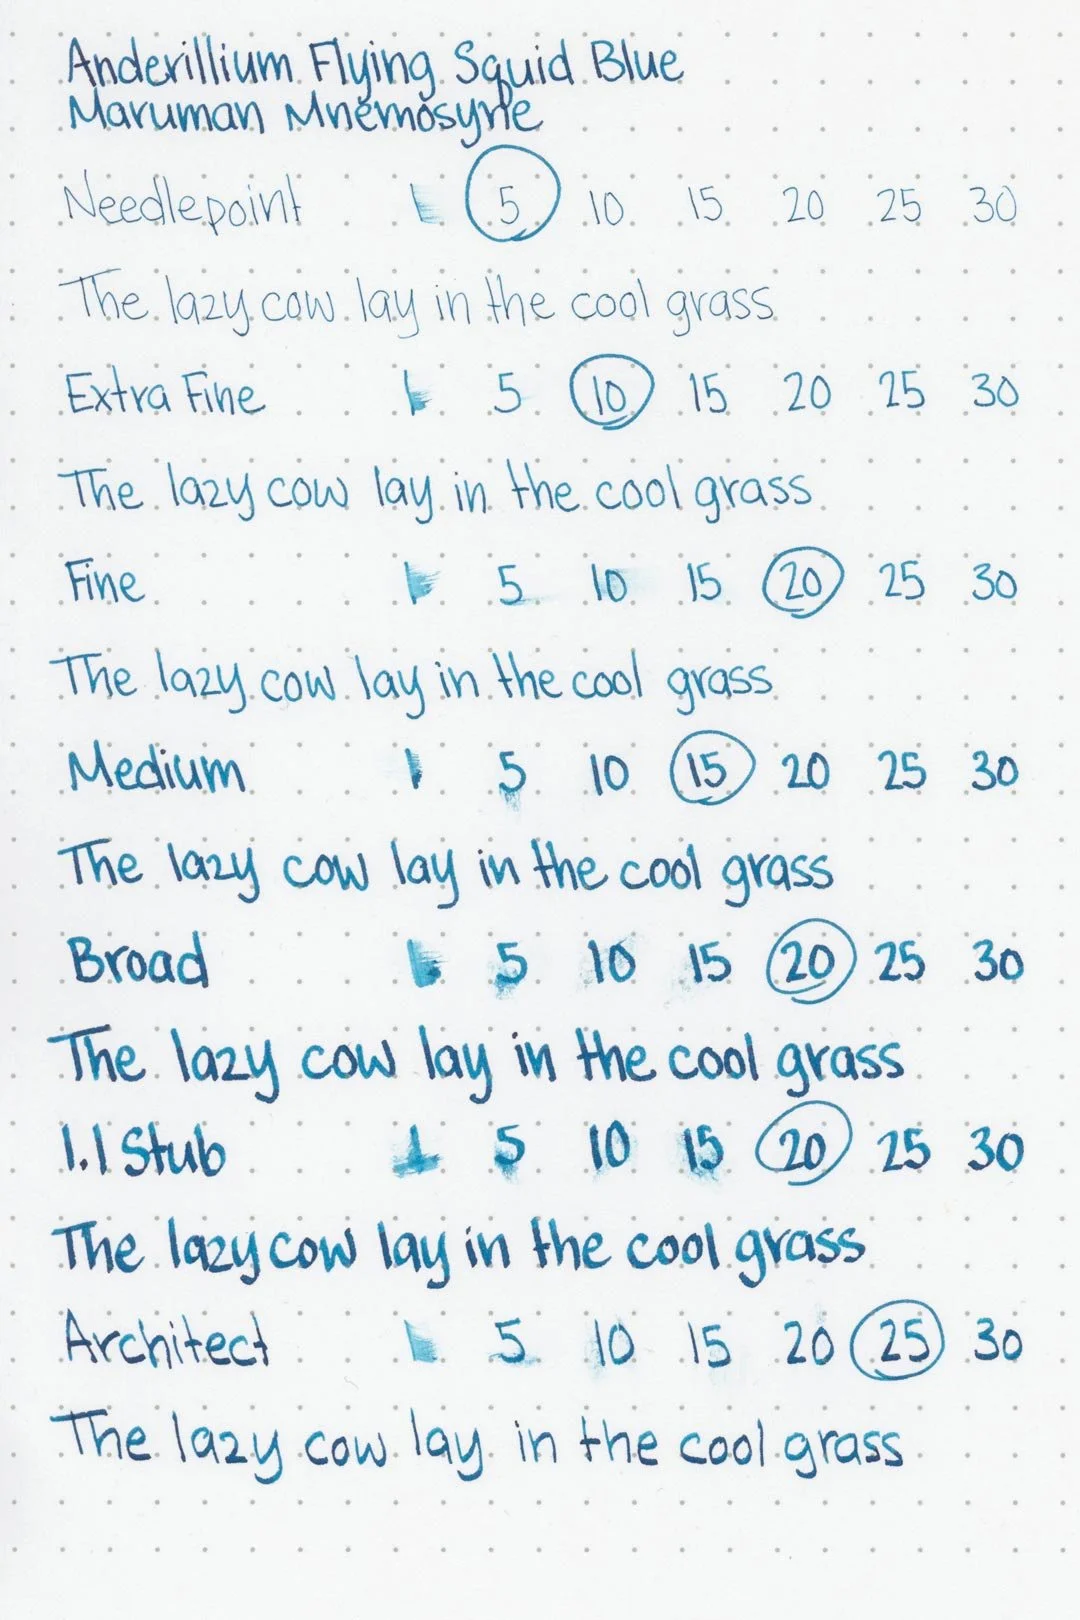 Anderillium Flying Squid Blue
Maruman Mnemosyne
Needlepoint 1 5 10 15 20 25 30
The lazy cow lay in the cool grass
Extra Fine 1 5 10 15 20 25 30
The lazy cow lay in the cool grass
Fine 1 5 10 15 20 25 30
The lazy cow lay in the cool grass
Medium 1 5 10 15 20 25 30
The lazy cow lay in the cool grass
Broad 1 5 10 15 20 25 30
The lazy cow lay in the cool grass
1.1 Stub 1 5 10 15 20 25 30
The lazy cow lay in the cool grass
Architect 1 5 10 15 20 25 30
The lazy cow lay in the cool grass